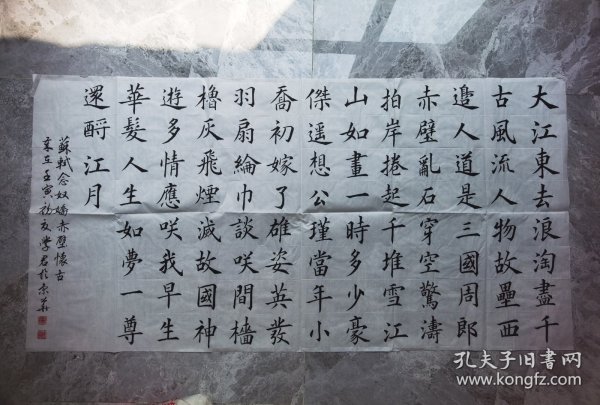 大江東去浪淘盡千
古風流人物故壘西
邉人道是三國周郎
赤壁亂石穿空驚濤
拍岸捲起千堆雪江
山如畫一時多少豪
傑遥想公瑾當年小
喬初嫁了雄姿英發
羽扇綸巾談咲間檣
櫓灰飛煙滅故國神
遊多情應咲我早生
華髮人生如夢一尊
還酹江月
蘇軾念奴嬌赤壁懷古
壬寅
孔夫子旧书网
www.kongfz.com